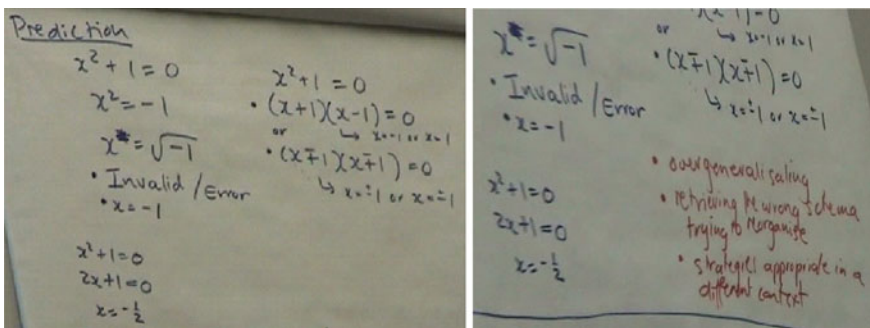 Prediction
x² + 1 = 0
x² = -1
x = √-1
• Invalid / Error
• x = -1
x² + 1 = 0
2x + 1 = 0
x = -½
x² + 1 = 0
• (x+1)(x-1) = 0
↳ x = -1 or x = 1
or
• (x∓1)(x∓1) = 0
↳ x = ∸1 or x = ∸1
x = √-1
• Invalid / Error
• x = -1
x² + 1 = 0
2x + 1 = 0
x = -½
↳ x = -1 or x = 1
or
• (x∓1)(x∓1) = 0
↳ x = ∸1 or x = ∸1
• overgeneralising
• retrieving the wrong schema
trying to reorganise
• strategies appropriate in a
different context